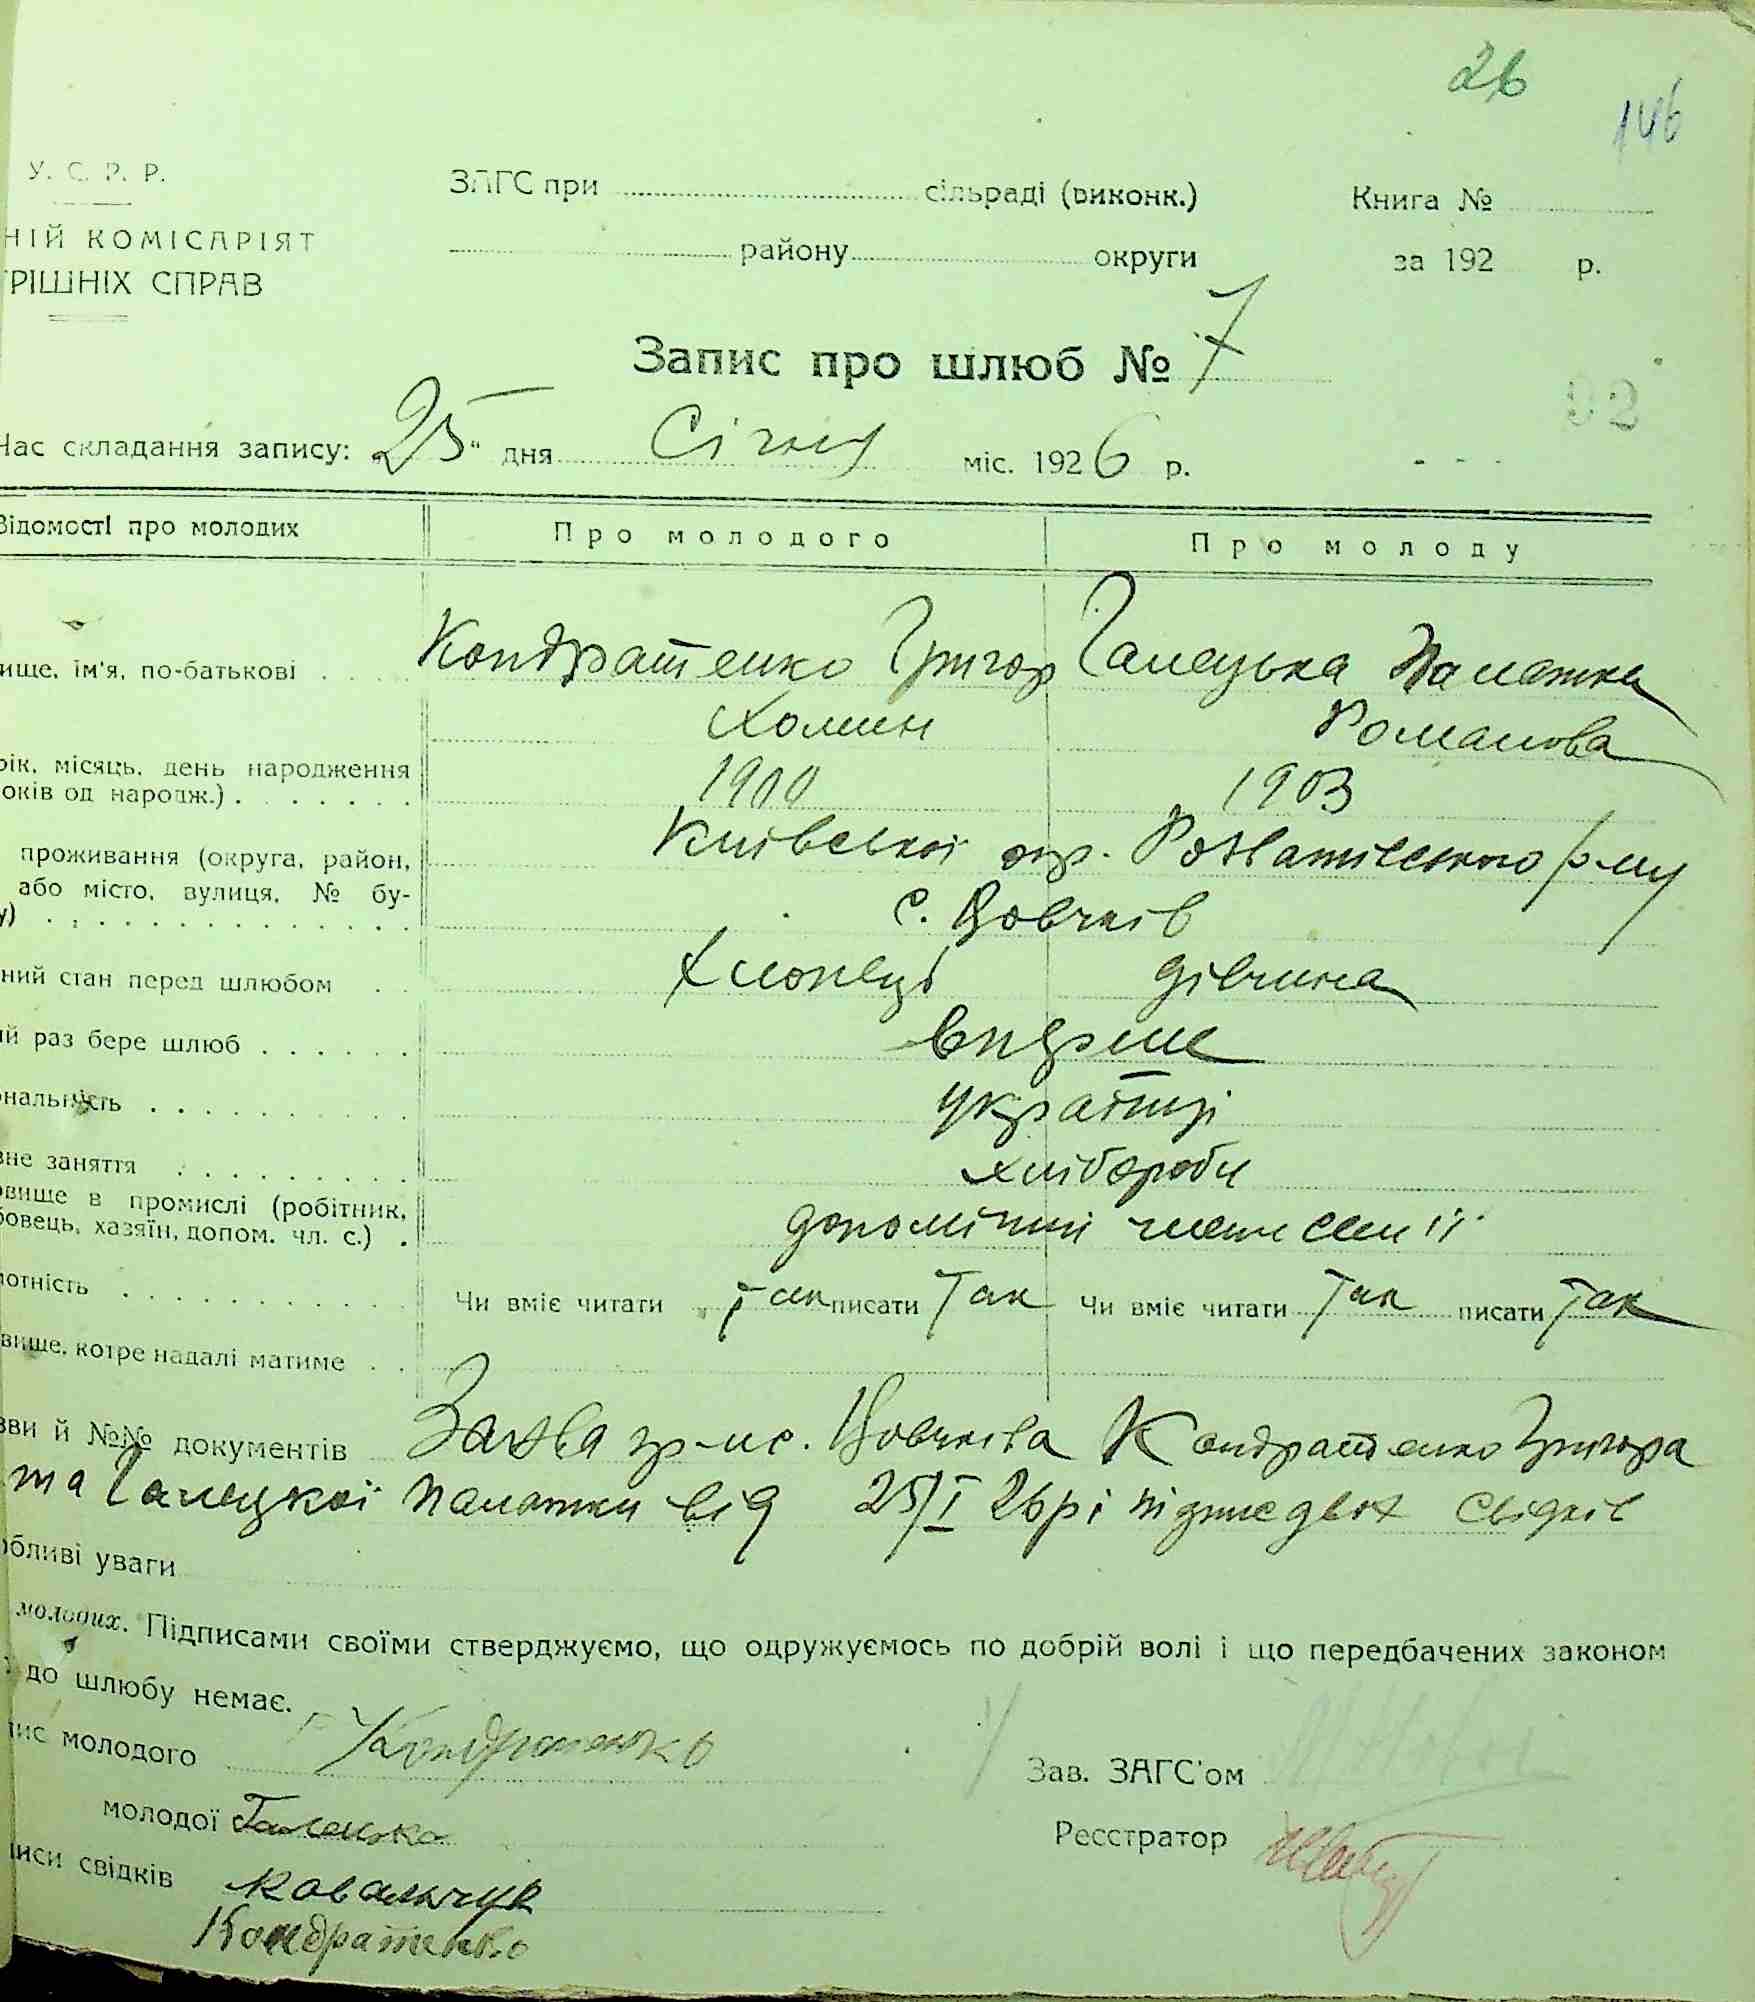 26
146
У. С. Р. Р.
ЗАГС при сільраді (виконк.) Книга №
НІЙ КОМІСАРІЯТ
району округи за 192 р.
РІШНІХ СПРАВ
Запис про шлюб № 7
92
Час складання запису: „25“ дня Січня міс. 1926 р.
Відомості про молодих Про молодого Про молоду
ище, ім'я, по-батькові Кондратенко Григор Галецька Палажка
Хомин Романова
рік, місяць, день народження
оків од народж.) 1900 1903
проживання (округа, район, Київської окр. Розважівського р-ну
або місто, вулиця, № бу-
у) с. Вовчків
ний стан перед шлюбом Хлопець дівчина
ий раз бере шлюб вперше
ональність українці
вне заняття хлібороби
овище в промислі (робітник,
бовець, хазяїн, допом. чл. с.) допомічні члени сем'ії
мотність Чи вміє читати Так писати Так Чи вміє читати Так писати Так
вище, котре надалі матиме
зви й №№ документів Заява гр-н с. Вовчкова Кондратенко Григора
та Галецкої Палажки від 25/I 26 р і підпис двох свідків
обливі уваги
молодих. Підписами своїми стверджуємо, що одружуємось по добрій волі і що передбачених законом
до шлюбу немає.
пис молодого Кондратенко
Зав. ЗАГС'ом
молодої Галецька
Реєстратор
писи свідків Ковальчук
Кондратенко